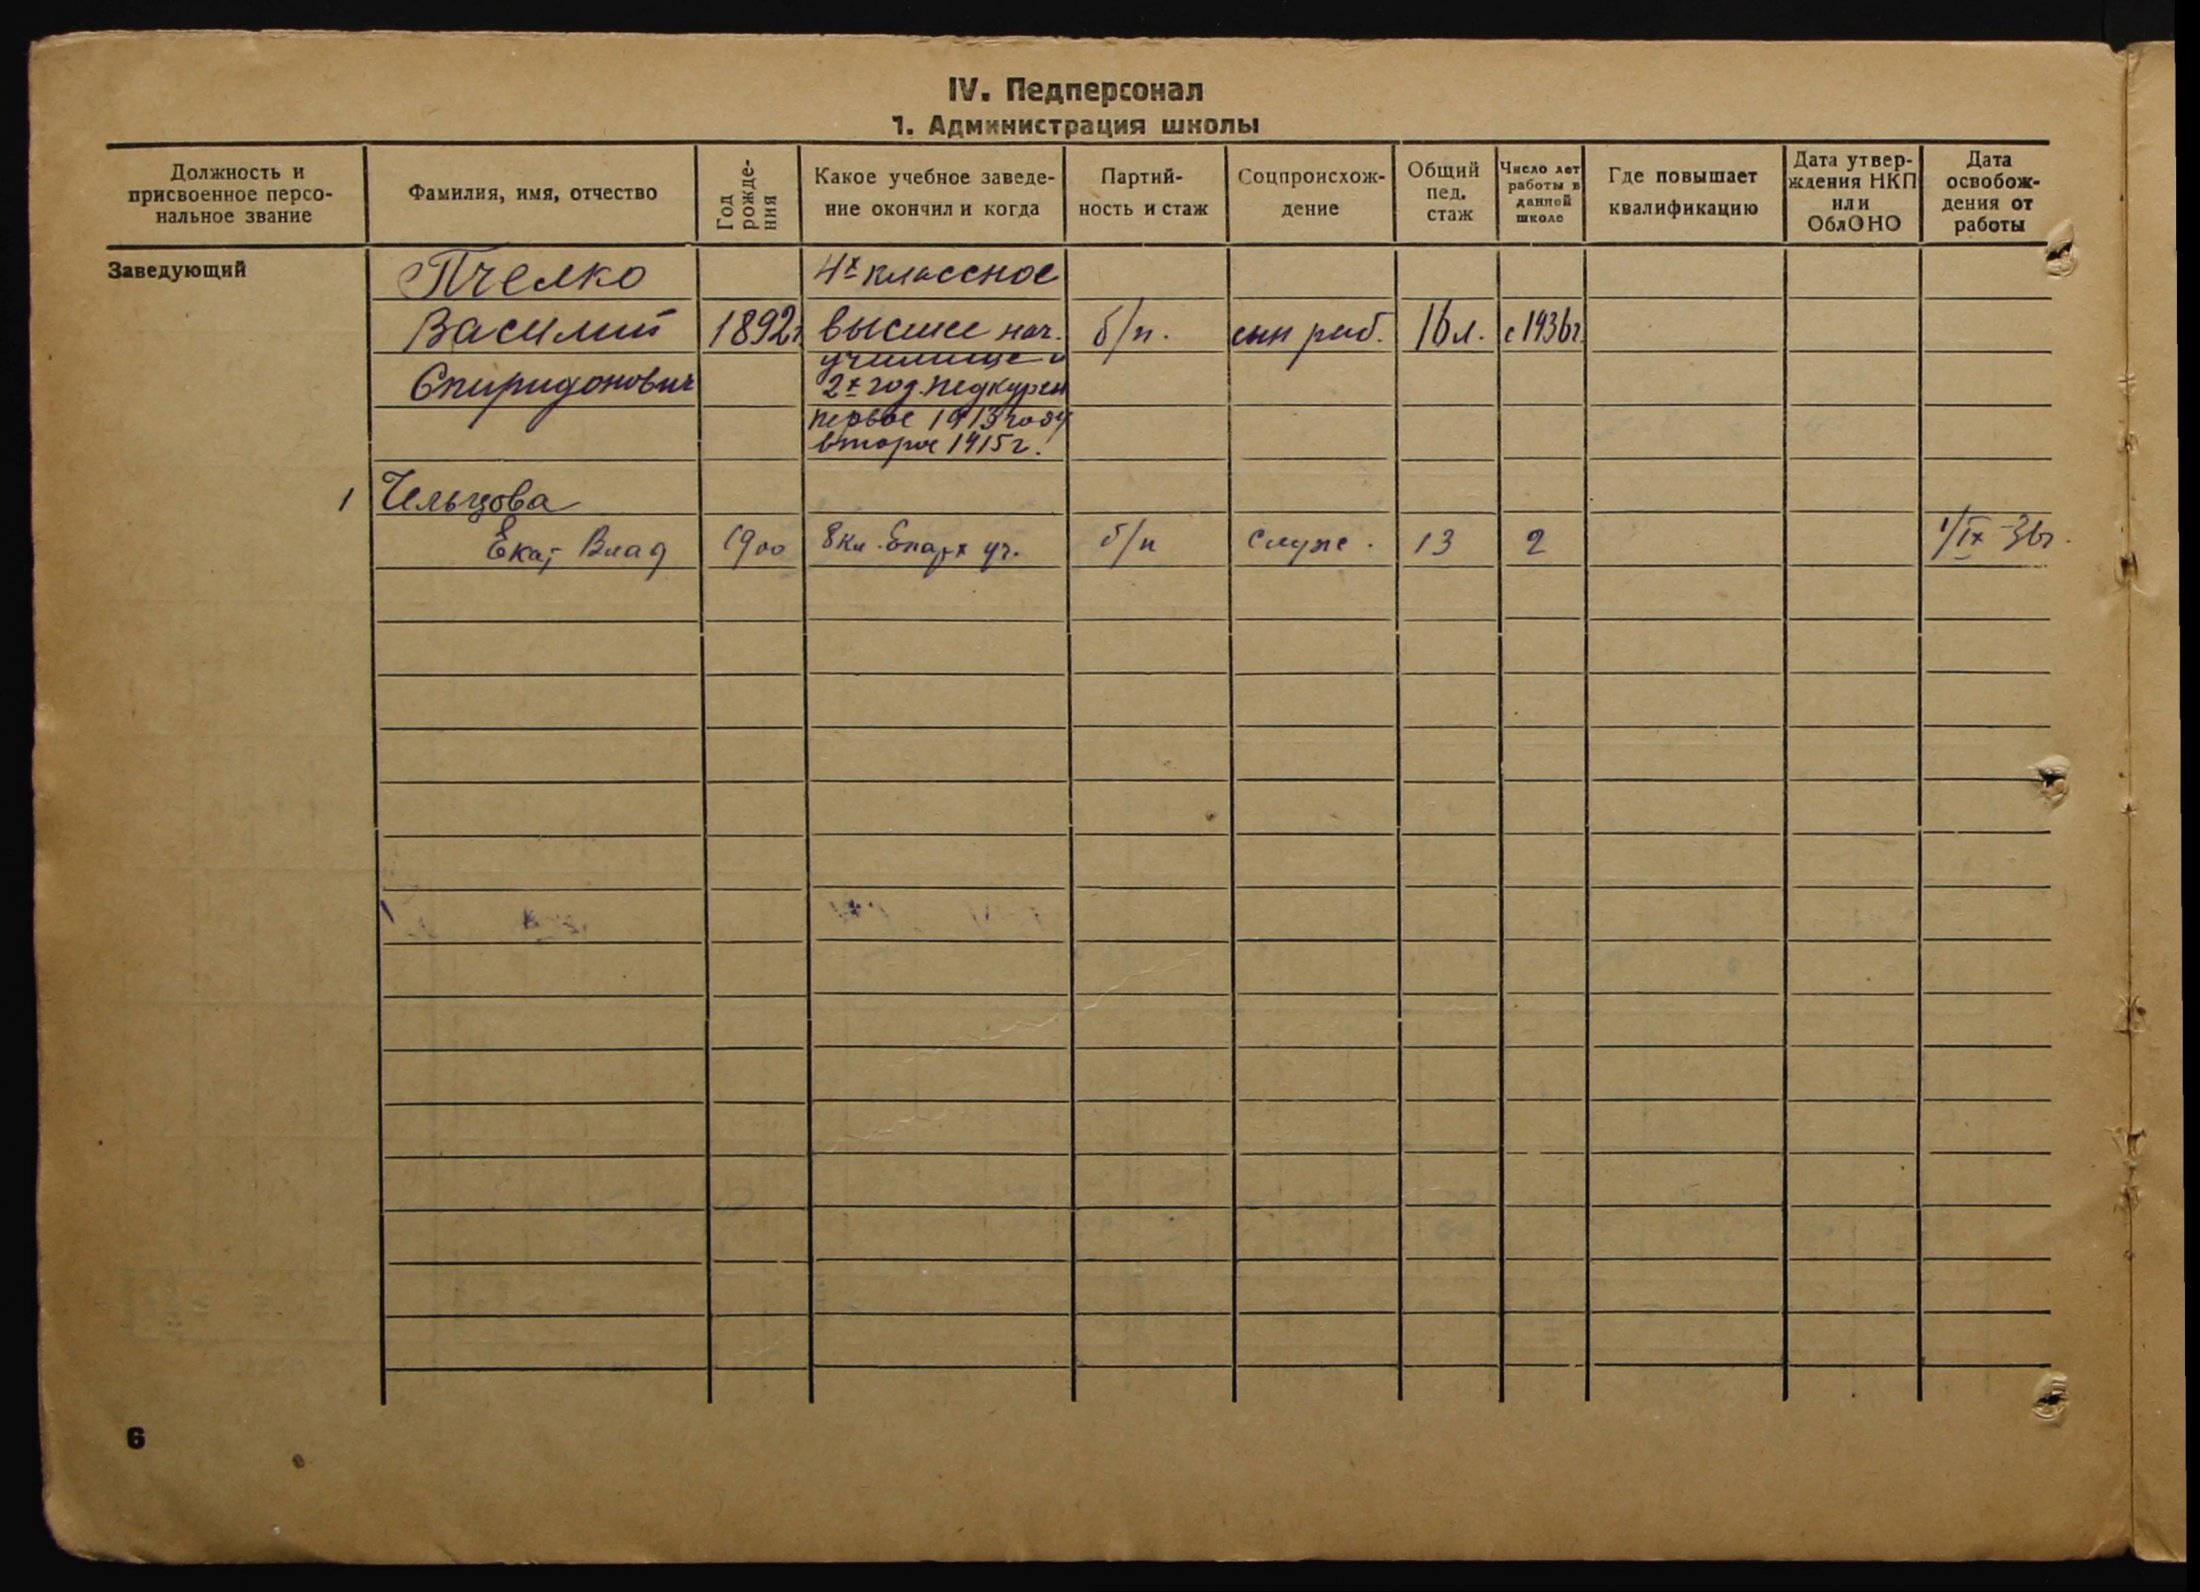 IV. Педперсонал
1. Администрация школы
Должность и присвоенное персо- нальное звание
Фамилия, имя, отчество
Год рожде- ния
Какое учебное заведе- ние окончил и когда
Партий- ность и стаж
Соцпроисхож- дение
Общий пед. стаж
Число лет работы в данной школе
Где повышает квалификацию
Дата утвер- ждения НКП или ОблОНО
Дата освобож- дения от работы
Заведующий
Пчелко
4х классное
Василий 1892г высшее нач. б/п. сын раб. 16 л. с 1936г.
училище и
Спиридонович 2х год. педкурсы
первое 1913 году
второе 1915 г.
1 Чельцова
Екат Влад 1900 8 кл. Епарх уч. б/п служ. 13 2 1/IX 36г.
6